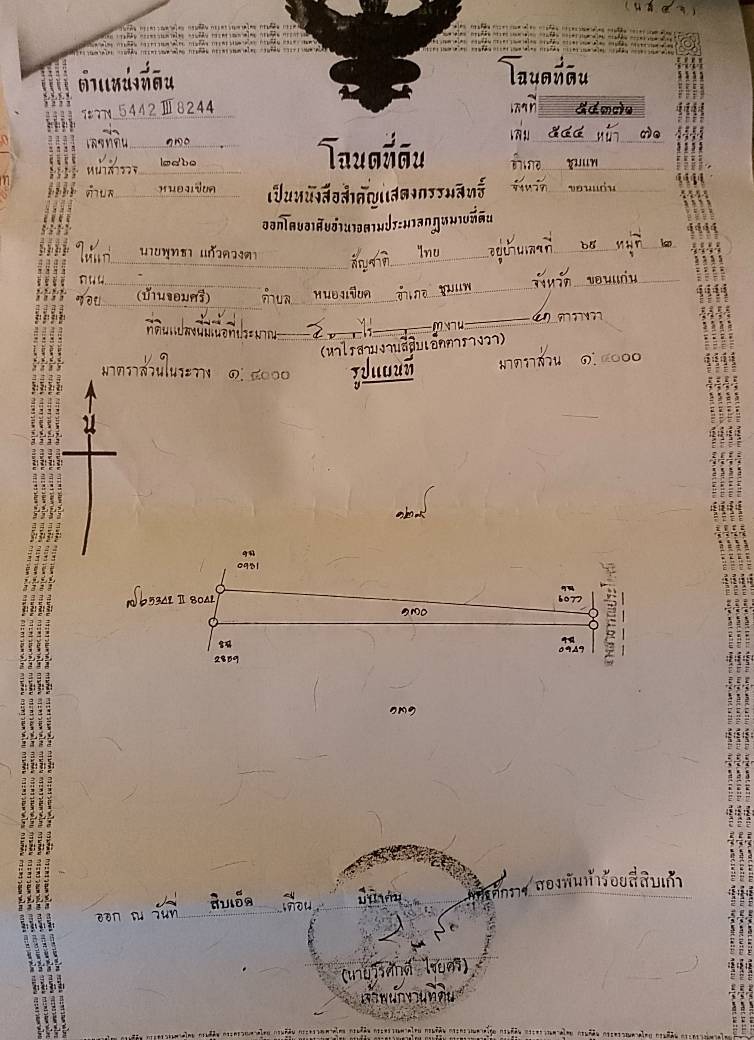 (น.ส.๔ จ.)
ตำแหน่งที่ดิน
ระวาง 5442 III 8244
เลขที่ดิน ๑๗๐
หน้าสำรวจ ๒๘๖๑
ตำบล หนองเขียด
โฉนดที่ดิน
เลขที่ ๕๔๓๗๑
เล่ม ๕๔๔ หน้า ๗๑
อำเภอ ชุมแพ
จังหวัด ขอนแก่น
โฉนดที่ดิน
เป็นหนังสือสำคัญแสดงกรรมสิทธิ์
ออกโดยอาศัยอำนาจตามประมวลกฎหมายที่ดิน
ให้แก่ นายพุทธา แก้วดวงตา สัญชาติ ไทย อยู่บ้านเลขที่ ๖๙ หมู่ที่ ๒
ถนน -
ซอย (บ้านจอมศรี) ตำบล หนองเขียด อำเภอ ชุมแพ จังหวัด ขอนแก่น
ที่ดินแปลงนี้มีเนื้อที่ประมาณ ๕ ไร่ ๓ งาน ๔๑ ตารางวา
(ห้าไร่สามงานสี่สิบเอ็ดตารางวา)
มาตราส่วนในระวาง ๑: ๔๐๐๐ รูปแผนที่ มาตราส่วน ๑: ๔๐๐๐
น
๑๒๙
0931
5342 II 8042
6077
๑๗๐
2859
0949
ทางสาธารณประโยชน์
๑๗๑
ออก ณ วันที่ สิบเอ็ด เดือน มีนาคม พุทธศักราช สองพันห้าร้อยสี่สิบเก้า
(นายวีรศักดิ์ ไชยศรี)
เจ้าพนักงานที่ดิน